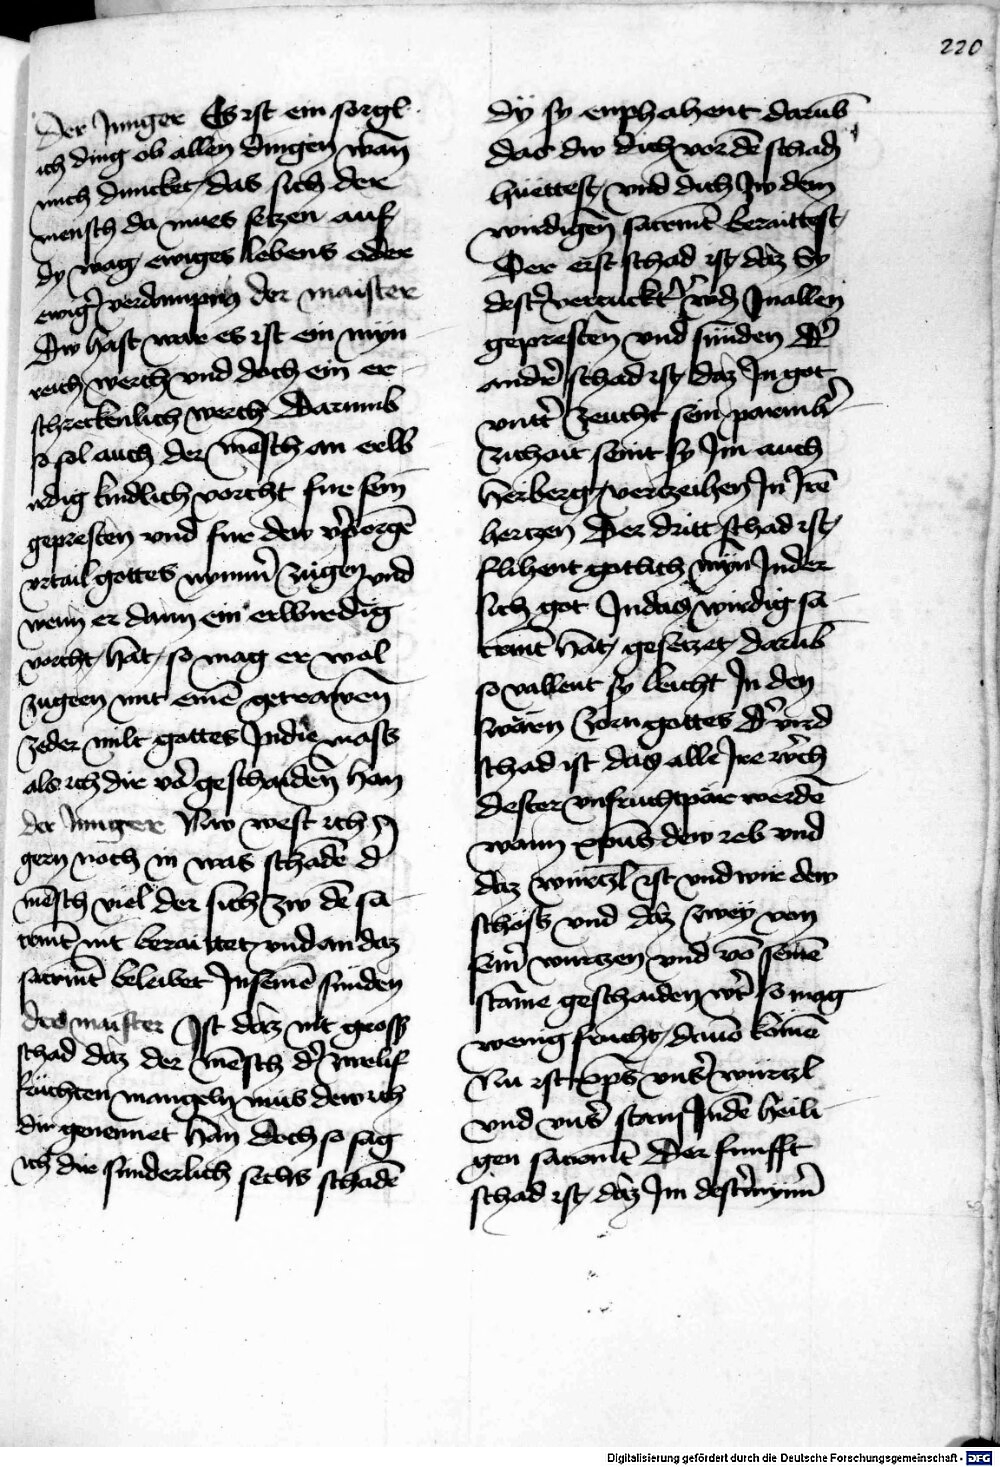 220
Der Junger Es ist ein sorgl
ich ding ob allen dingen wan̄
mich duncket das sich der
mensch da mues setzen auf
dy wag ewiges lebens oder
ewig̕ verdampnus der maister
Dw hast war es ist ein myn
reich werch vnd doch ein er
schreckenlich werch Darumb
so sol auch der me̅sch an erlb
irdig kindlich vorcht fur sein
gepresten vnd fur dew v̕porge̅
vrtail gottes nymm̕ zugen vnd
wenn er dann ein erlbirdig
vorcht hat so mag er wol
zugeen mit eine̅ getrawen̄
zeder milt gottes In die mass
als ich dir vor geschaiden̄ han
der Junger Nw west ich
gern noch in was schade̅ d̕
me̅sch viel der sich zw de̅ sa
cramt̅ nit beraittet vnd an daz
sacramt̅ beleibet In seine̅ sunden
der maister Ist daz nit gross
schad daz der me̅sch d̕ zwelif
fruchten mangeln mus dew ich
dir genennet han̄ Doch so sag
ich dir sunderlich sechs schade̅
dy sy enphahent darub̅
das dw dich vor de̅ schad̅
huettest vnd dich zw dem
wirdigen̄ sacramt̅ beraittest
Der erst schad ist daz Sy
dest̕ verruckt̕ w̕d̅ In allen
gepresten̄ vnd sunden D̕
andr̕ schad ist daz In got
vntt̕ zeucht sein parmh̕
zichait seint sy Im auch
herberg verzeihen In Ire̅
hertzen Der dritt schad ist
flihent gotlich myn In der
sich got In das wirdig sa
cramt̅ hat gesetzet darub̅
so vallent sy leicht In den
swären zorn gottes D̕ vird
schad ist das alle Ire w̕ch
dester vnfruchtpär werde̅
wann xp̅us dew reb vnd
daz wurtzl̅ ist vnd wir dew
schoss vnd daz zwey von
sein̕ wurtzen vnd vo̅ seine̅
stame geschaiden w̕t so mag
wenig frucht dauo̅ kome̅
Nu ist xp̅s vns̕ wurtzl
vnd vns̕ stam In de̅ heili
gen sacramt̅ Der funfft
schad ist daz Im dest̕ mynn̕
Digitalisierung gefördert durch die Deutsche Forschungsgemeinschaft - DFG